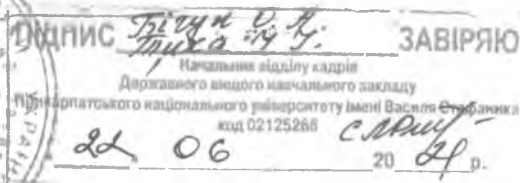 ПІДПИС Бігун О.А. ЗАВІРЯЮ
Тиха
Начальник відділу кадрів
Державного вищого навчального закладу
Прикарпатського національного університету імені Василя Стефаника
код 02125266
22 06 20 21 р.
УКРАЇН